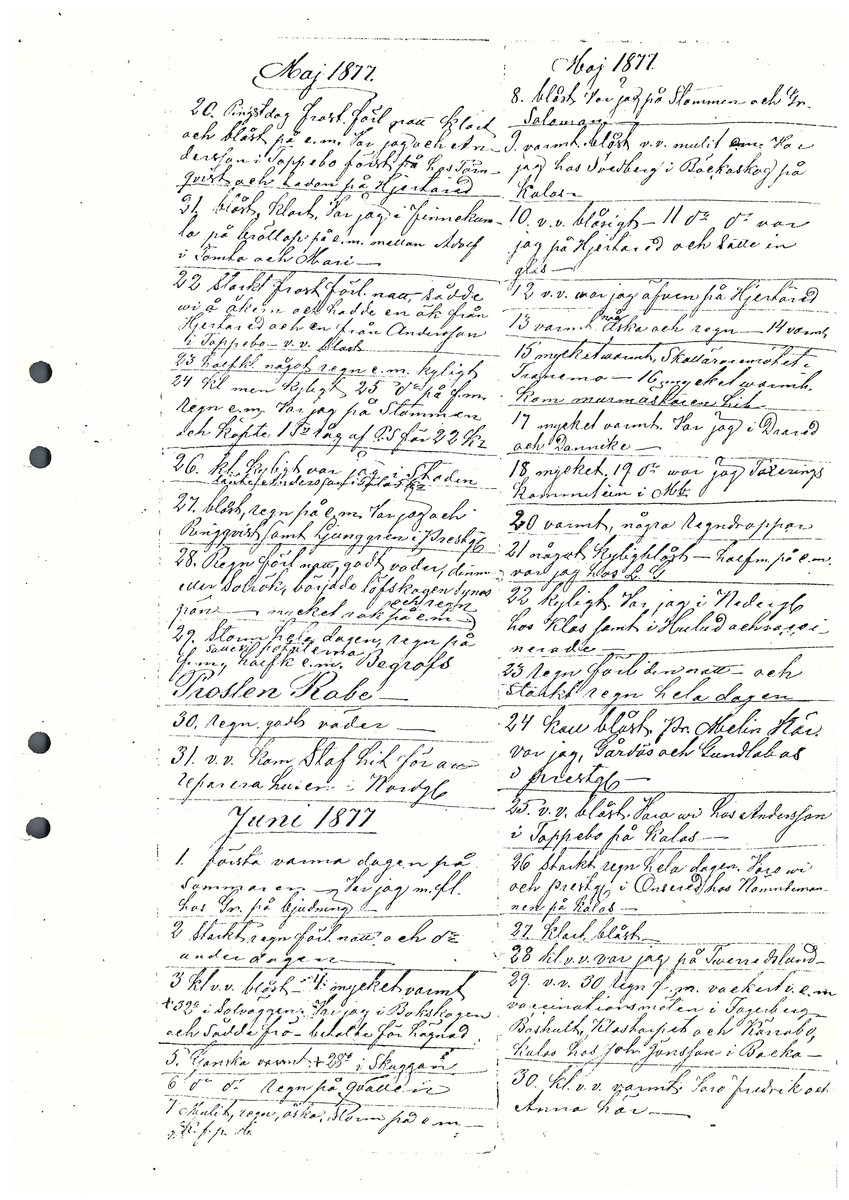 Maj 1877.
20. Pingstdag frost förl. natt klart
och blåst på e.m. Var jag och An-
dersson i Toppebo först på hos Törn-
qvist och sedan på Hjertared
21 blåst, klart. Var jag i Finnekum-
la på bröllop på e.m. mellan Adolf
i Tomta och Mari
22 Starkt frost förl. natt, sådde
wi å åkern och hadde en åk från
Hjertared och en från Andersson
i Toppebo - v.v. blåst
23 halfkl. något regn e.m. kyligt
24 kl men kyligt 25 do på f.m.
regn e.m. Var jag på Stommen
och köpte 1 råg af för 22 Kr
26. kl. kyligt var jag i Staden
27. blåst, regn på e.m. Var jag och
Ringqvist samt Ljunggren i Prestg
28. Regn förl. natt, godt väder, dimm
eller Solrök, började löfskogen synas
mycket rök på e.m.
och regn
29. Storm hela dagen, regn på
f.m, halfk e.m. Begrofs
Prosten Rabe
30. regn. godt väder
31. v.v. kom Staf hit för att
reparera husen i Nordg
Juni 1877
1. första varma dagen på
Sommaren - Var jag m. fl.
hos Gr. på bjudning
2 Starkt regn förl. natt och do
under dagen
3 kl v.v. blåst - 4. mycket varmt
+ 32° i Solväggen. Var jag i Bokskogen
och sådde frö - betalte för
5. Ganska varmt + 28° i Skuggan
6 do do regn på qvällen
7 Mulit, regn, åska, storm på e m
Maj 1877.
8. blåst Var jag på Stommen och Gr.
Saloman
9. varmt. blåst v.v. mulit em. Var
jag hos Svedberg i Bäckaskog på
kalas
10. v.v. blåsigt - 11 do do var
jag på Hjertared och satte in
glas
12 v.v. war jag äfven på Hjertared
13 varmt åska och regn - 14 varmt
15 mycket varmt, Skollärare mötet i
Tranemo - 16 mycket warmt.
kom murmästaren hit
17 mycket varmt. Var jag i Drared
och Dannike
18 mycket. 19 do war jag Taxerings
kommitéen i
20 varmt, några regndroppar
21 något kyligt blåst - halfm. på e.m.
var jag hos L. G
22 kyligt. Var jag i Nederg
hos Klas samt i Hulud och vacci
nerade
23 regn förliden natt - och
starkt regn hela dagen
24 kall blåst, Pr. Melin här.
var jag, Gårdös och Gundlabos
i prestg
25. v.v. blåst. Voro wi hos Andersson
i Toppebo på kalas
26 starkt regn hela dagen. Voro wi
och prestg i Onsered hos Nämndeman-
nen på kalas
27. klart blåst
28 kl. v.v. var jag på Twerredslund
29. v.v. 30 regn f.m. vackert v. e.m
vaccinationsmöten i Fagerberg
Boshult, Klastorpet och Kärrabo,
kalas hos Joh Jönsson i Backa
30. kl. v.v. varmt. Voro fredrik och
Anna här